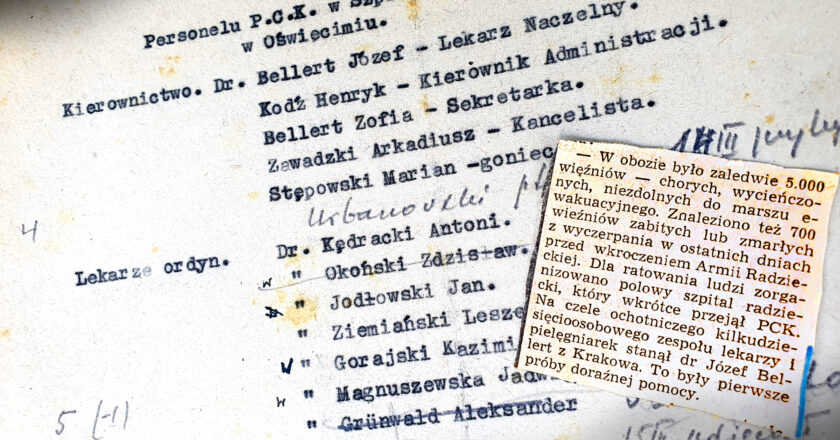 Personelu P.C.K. w Szp
w Oświęcimiu.
Kierownictwo. Dr. Bellert Józef - Lekarz Naczelny.
Kodź Henryk - Kierównik Administracji.
Bellert Zofia - Sekretarka.
Zawadzki Arkadiusz - Kancelista.
Stępowski Marian -goniec
Urbanowski
4
Lekarze ordyn. Dr. Kędracki Antoni.
w " Okoński Zdzisław.
" Jodłowski Jan.
" Ziemiański Lesze
w " Gorajski Kazimi
w " Magnuszewska Jadw
" Grünwald Aleksander
5 (-1)
— W obozie było zaledwie 5.000
więźniów — chorych, wycieńczo-
nych, niezdolnych do marszu e-
wakuacyjnego. Znaleziono też 700
więźniów zabitych lub zmarłych
z wyczerpania w ostatnich dniach
przed wkroczeniem Armii Radzie-
ckiej. Dla ratowania ludzi zorga-
nizowano polowy szpital radzie-
cki, który wkrótce przejął PCK.
Na czele ochotniczego kilkudzie-
sięcioosobowego zespołu lekarzy i
pielęgniarek stanął dr Józef Bel-
lert z Krakowa. To były pierwsze
próby doraźnej pomocy.